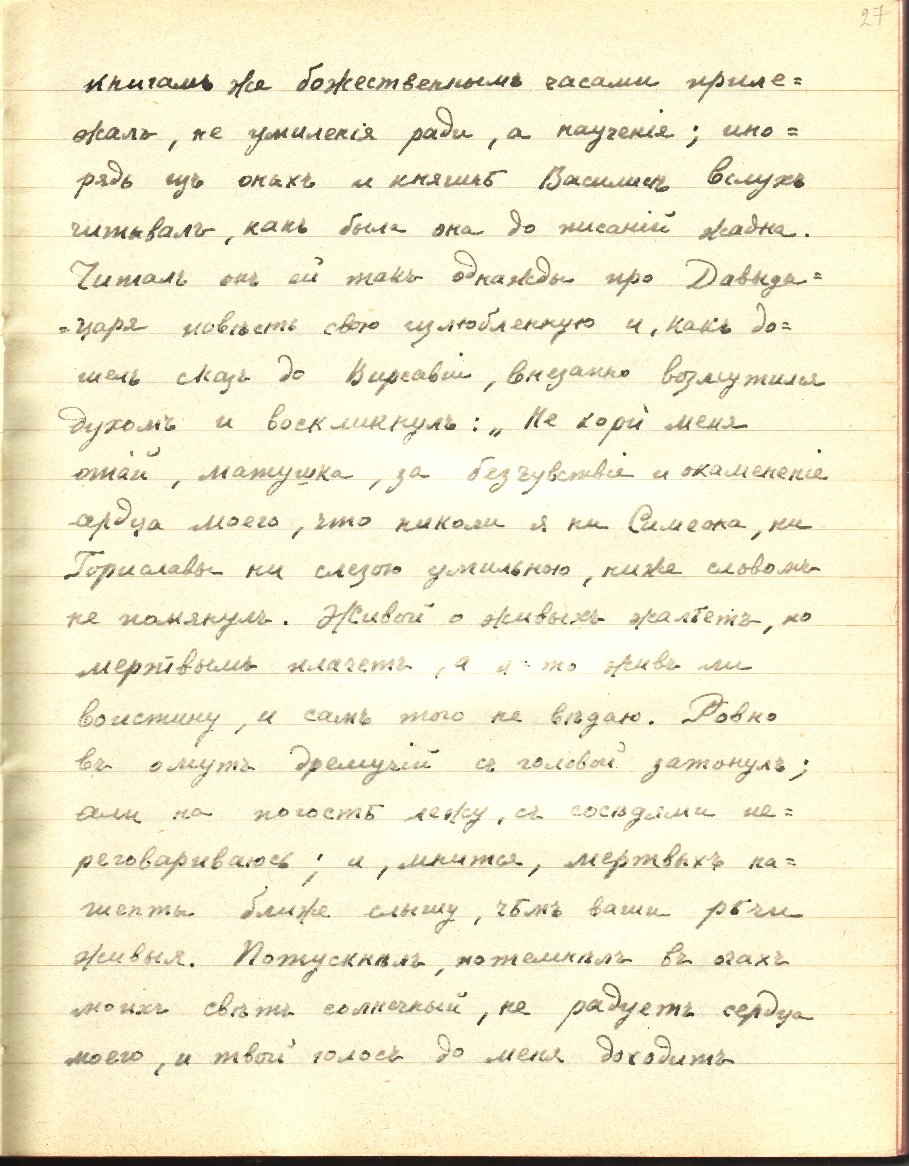 27
книгамъ же божественнымъ часами приле=
жалъ, не умиленія ради, а наученія; ино=
рядь изъ оныхъ и княгинѣ Василисѣ вслухъ
читывалъ, какъ была она до писаній жадна.
Читалъ онъ ей такъ однажды про Давыда=
=царя повѣсть свою излюбленную и, какъ до=
шелъ сказъ до Вирсавіи, внезапно возмутился
духомъ и воскликнулъ: „Не кори меня
отай, матушка, за безчувствіе и окамененіе
сердца моего, что николи я ни Симеона, ни
Гориславы ни слезою умильною, ниже словомъ
не помянулъ. Живой о живыхъ жалѣетъ, по
мертвымъ плачетъ, а я-то живъ ли
воистину, и самъ того не вѣдаю. Ровно
въ омутъ дремучій съ головой затонулъ;
али на погостѣ лежу, съ сосѣдями пе=
реговариваюсь; и, мнится, мертвыхъ на=
шепты ближе слышу, чѣмъ ваши рѣчи
живыя. Потускнѣлъ, потемнѣлъ въ очахъ
моихъ свѣтъ солнечный, не радуетъ сердца
моего, и твой голосъ до меня доходитъ